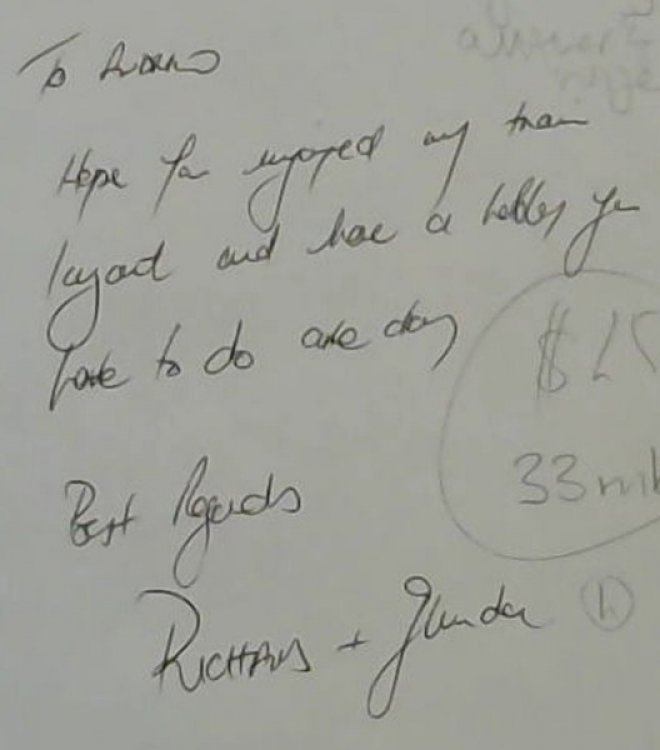 To
Hope you enjoyed my train
layout and have a hobby you
love to do one day
Best Regards
RICHARD + Glenda
$25
33 mil